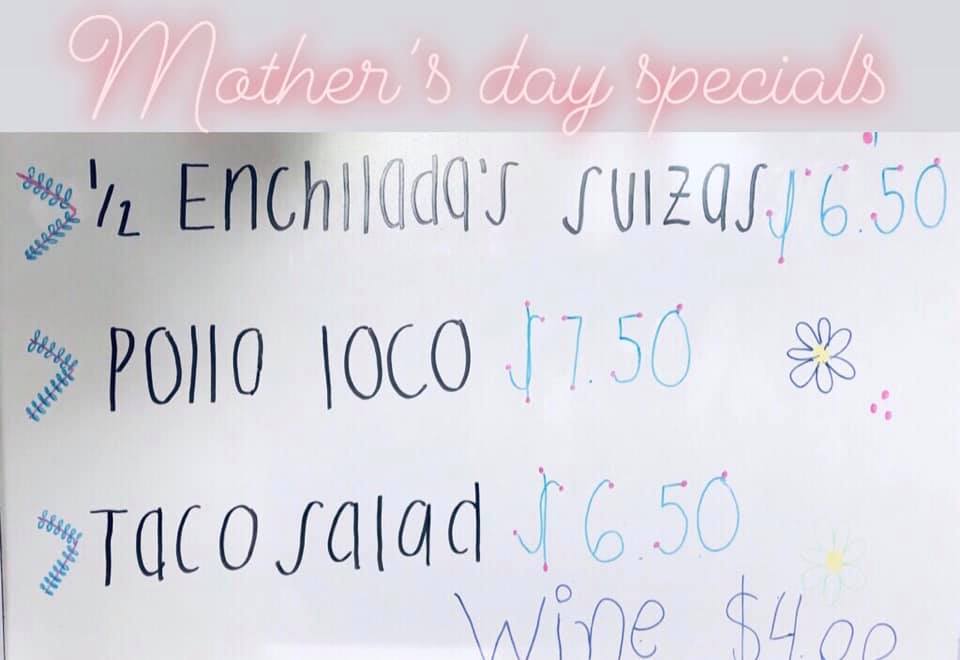 Mother's day specials
1/2 Enchilada's suizas $6.50
Pollo loco $7.50
Taco salad $6.50
Wine $4.00